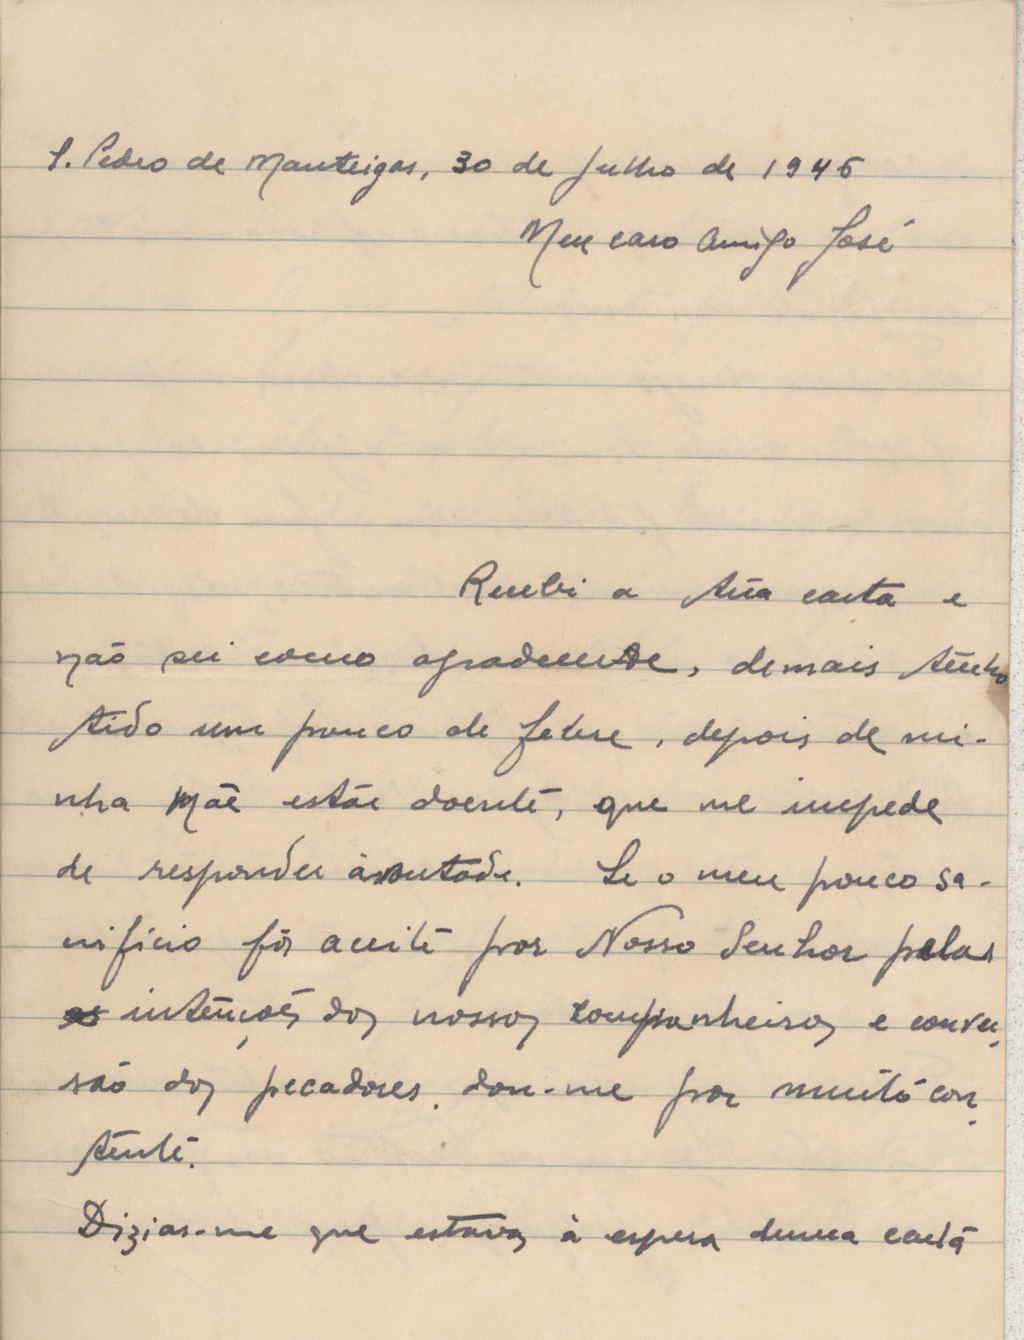 S. Pedro de Manteigas, 30 de Julho de 1946
Meu caro Amigo José
Recebi a tua carta e
não sei como agradecer-te, demais tenho
tido um pouco de febre, depois de mi-
nha Mãe estár doente, que me impede
de responder à vontade. Se o meu pouco sa-
crifício fôr aceite por Nosso Senhor pelas
intenções dos nossos companheiros e conver-
são dos pecadores, dou-me por muito con-
tente.
Dizias-me que estavas à espera duma carta